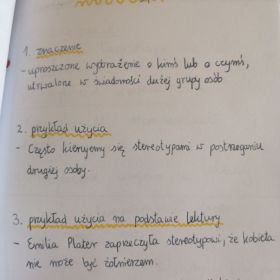 1. znaczenie
- uproszczone wyobrażenie o kimś lub o czymś,
utrwalone w świadomości dużej grupy osób
2. przykład użycia
- Często kierujemy się stereotypami w postrzeganiu
drugiej osoby.
3. przykład użycia na podstawie lektury
- Emilia Plater zaprzeczyła stereotypowi, że kobieta
nie może być żołnierzem.